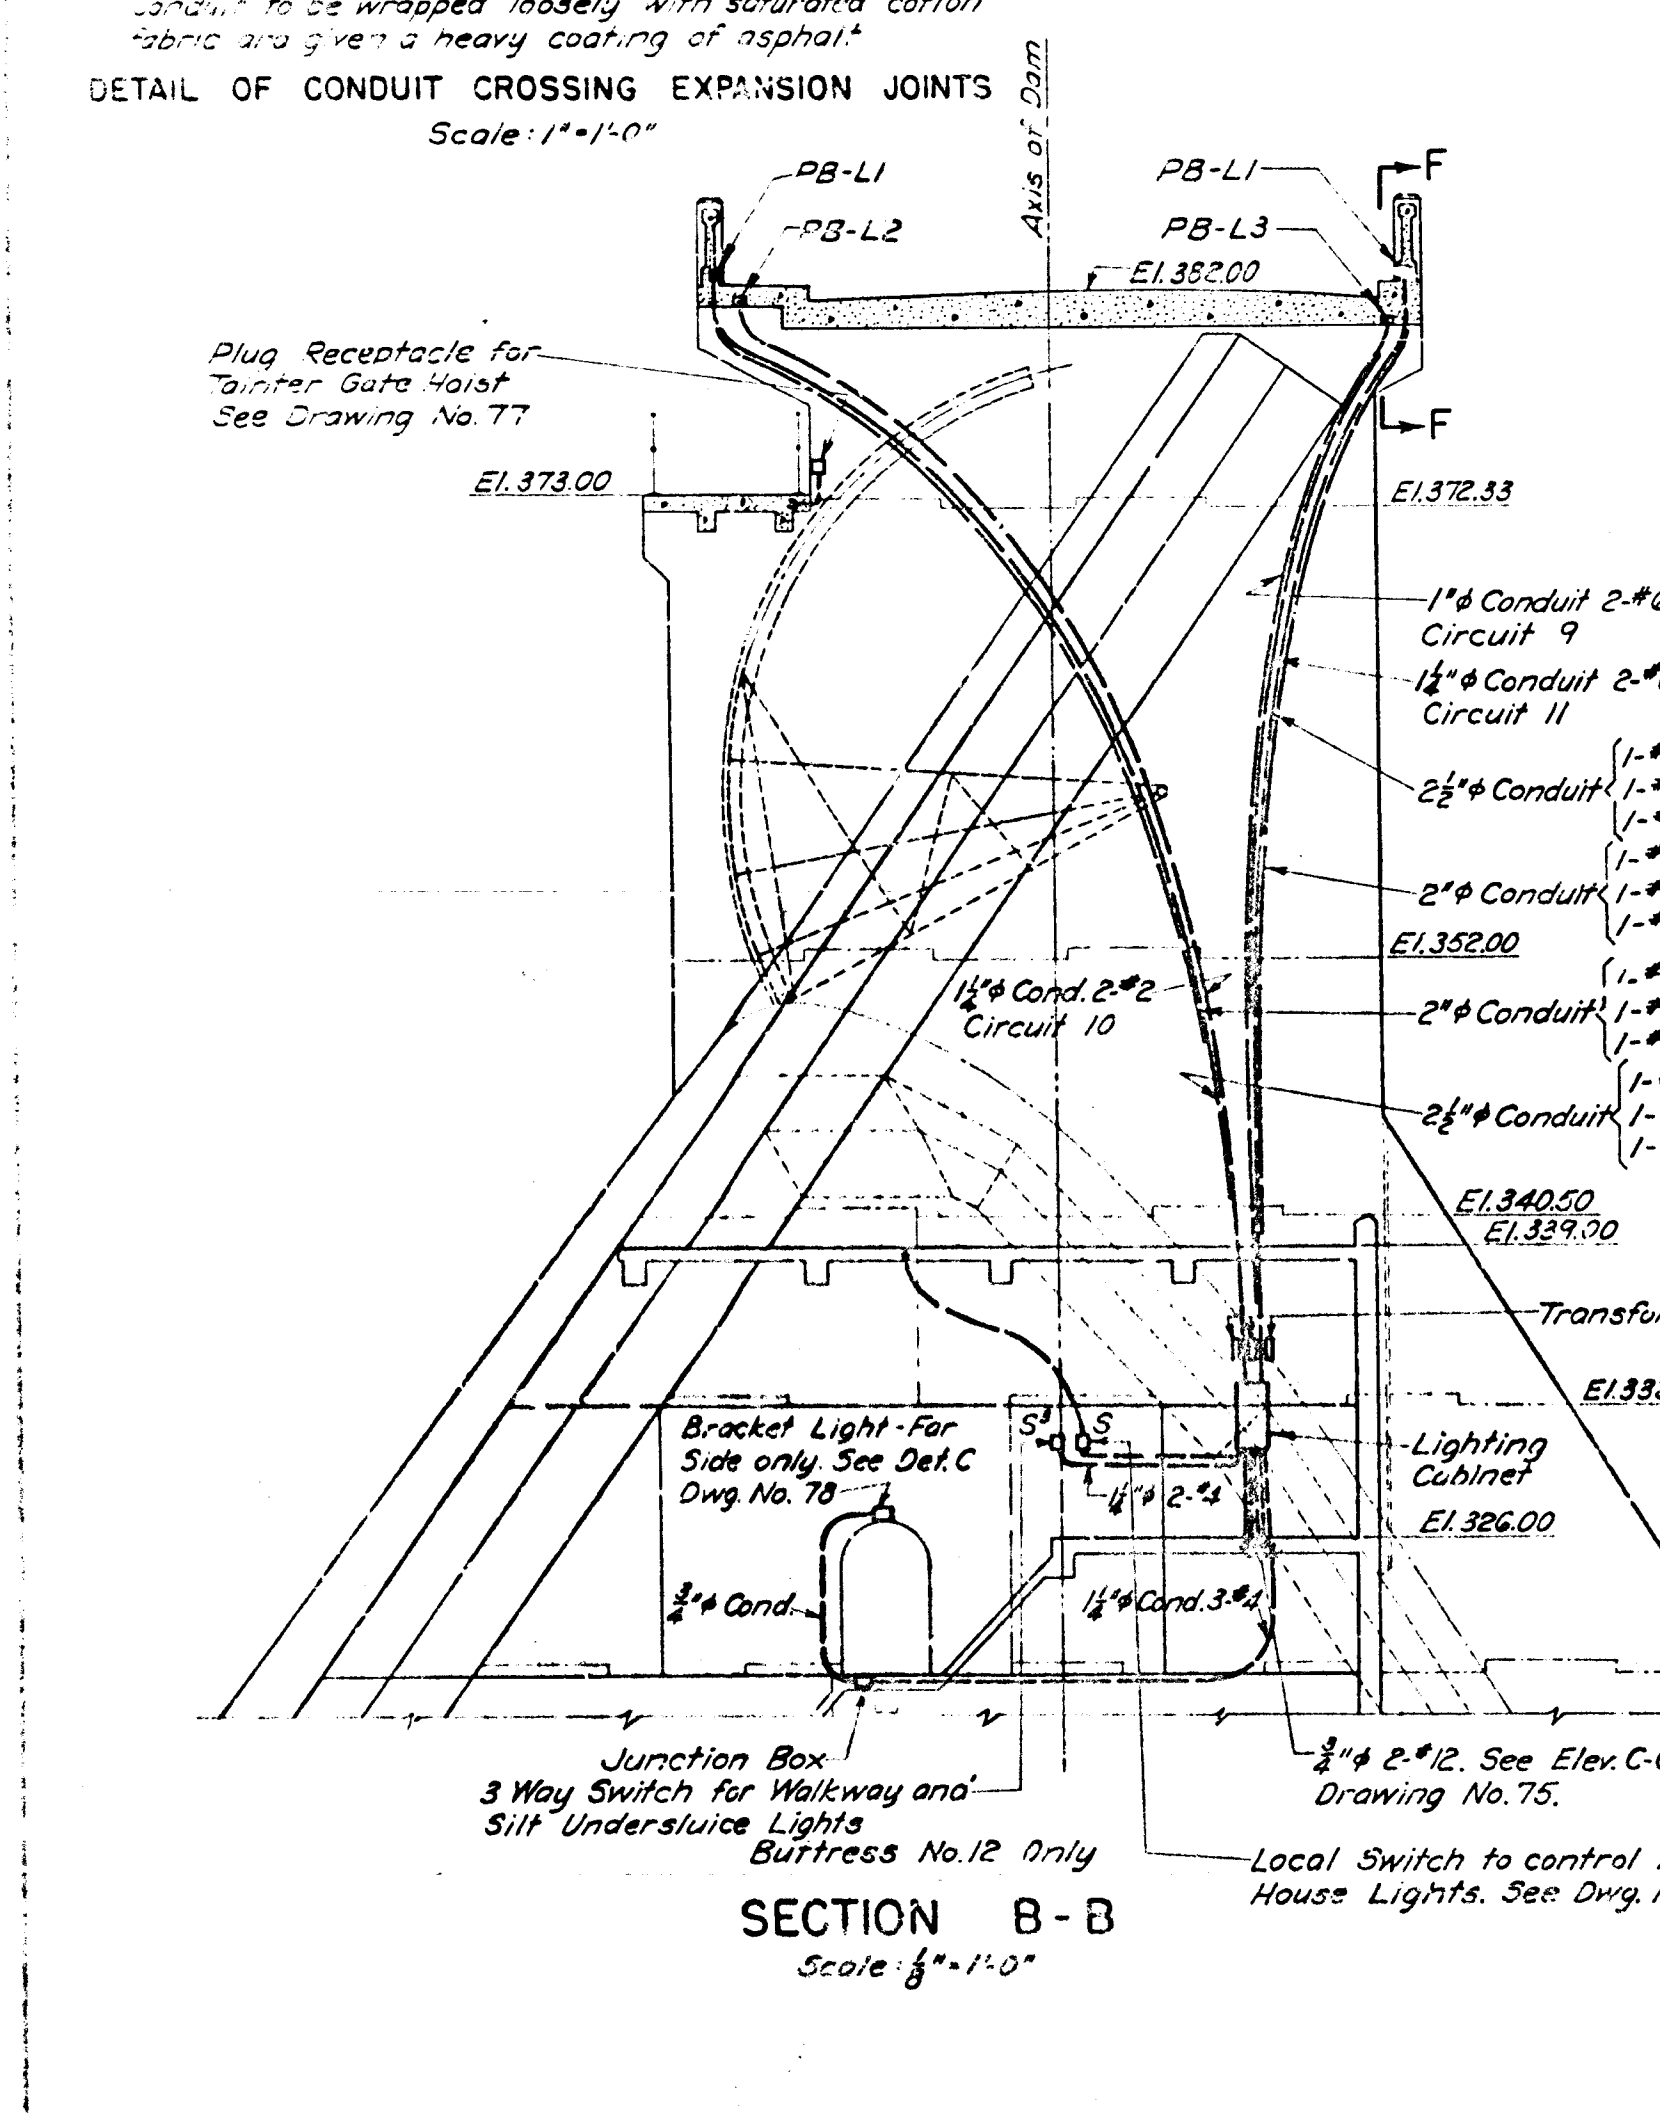 Conduit to be wrapped loosely with saturated cotton
fabric and given a heavy coating of asphalt
DETAIL OF CONDUIT CROSSING EXPANSION JOINTS
Scale: 1"=1'-0"
Axis of Dam
PB-L1
PB-L2
PB-L1
PB-L3
F
El. 382.00
Plug Receptacle for
Tainter Gate Hoist
See Drawing No. 77
F
El. 373.00
El. 372.33
1"φ Conduit 2-#6
Circuit 9
1¼"φ Conduit 2-#
Circuit 11
2½"φ Conduit { 1-#
1-#
1-#
2"φ Conduit { 1-#
1-#
1-#
El. 352.00
1¼"φ Cond. 2-#2
Circuit 10
2"φ Conduit { 1-#
1-#
1-#
2½"φ Conduit { 1-
1-
1-
El. 340.50
El. 339.00
Transfor
El. 333
Bracket Light-Far
Side only. See Det. C
Dwg. No. 78
S³ S
Lighting
Cabinet
1¼"φ 2-#4
El. 326.00
¾"φ Cond.
1¼"φ Cond. 3-#4
Junction Box
3 Way Switch for Walkway and
Silt Undersluice Lights
Buttress No. 12 Only
¾"φ 2-#12. See Elev. C-
Drawing No. 75.
Local Switch to control
House Lights. See Dwg.
SECTION B-B
Scale: ⅛"=1'-0"